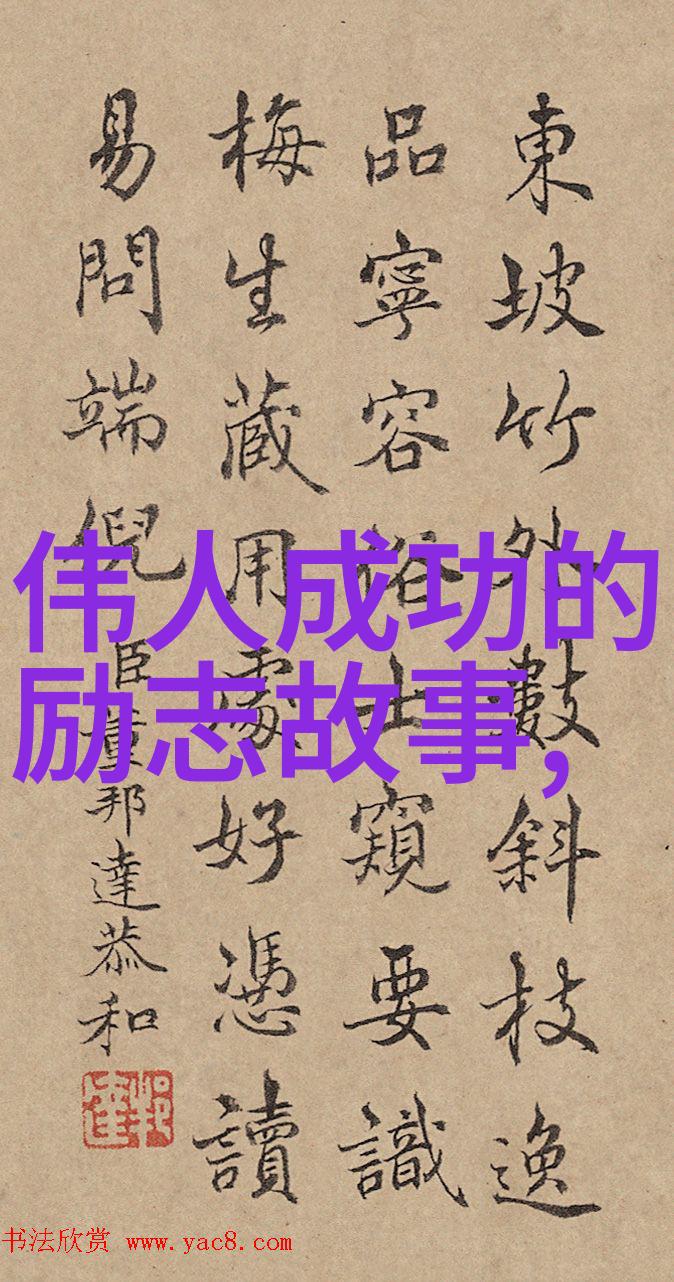 東坡竹外數斜枝逸
品寧容俗士窺要識
梅生藏用處好憑讀
易問端倪臣董邦達恭和
伟人成功的
励志故事,
书法欣赏 www.yac8.com